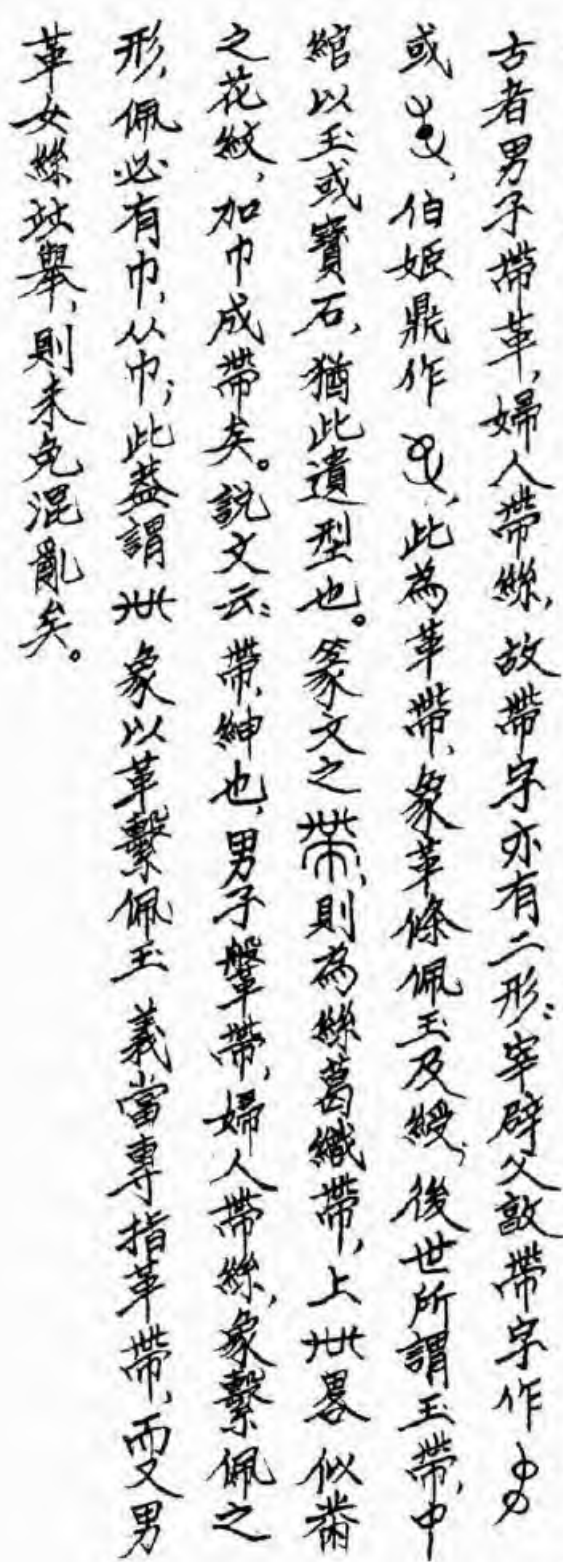 古者男子帶革，婦人帶絲，故帶字亦有二形：宰辟父敦帶字作
或，伯姬鼎作，此為革帶，象革條佩玉及綬，後世所謂玉帶，中
綰以玉或寶石，猶此遺型也。篆文之帶，則為絲葛織帶，上卌畧似黹
之花紋，加巾成帶矣。說文云：帶，紳也，男子鞶帶，婦人帶絲，象繫佩之
形，佩必有巾，从巾；此蓋謂卌象以革繫佩玉 義當專指革帶，而又男
革女絲竝舉，則未免混亂矣。